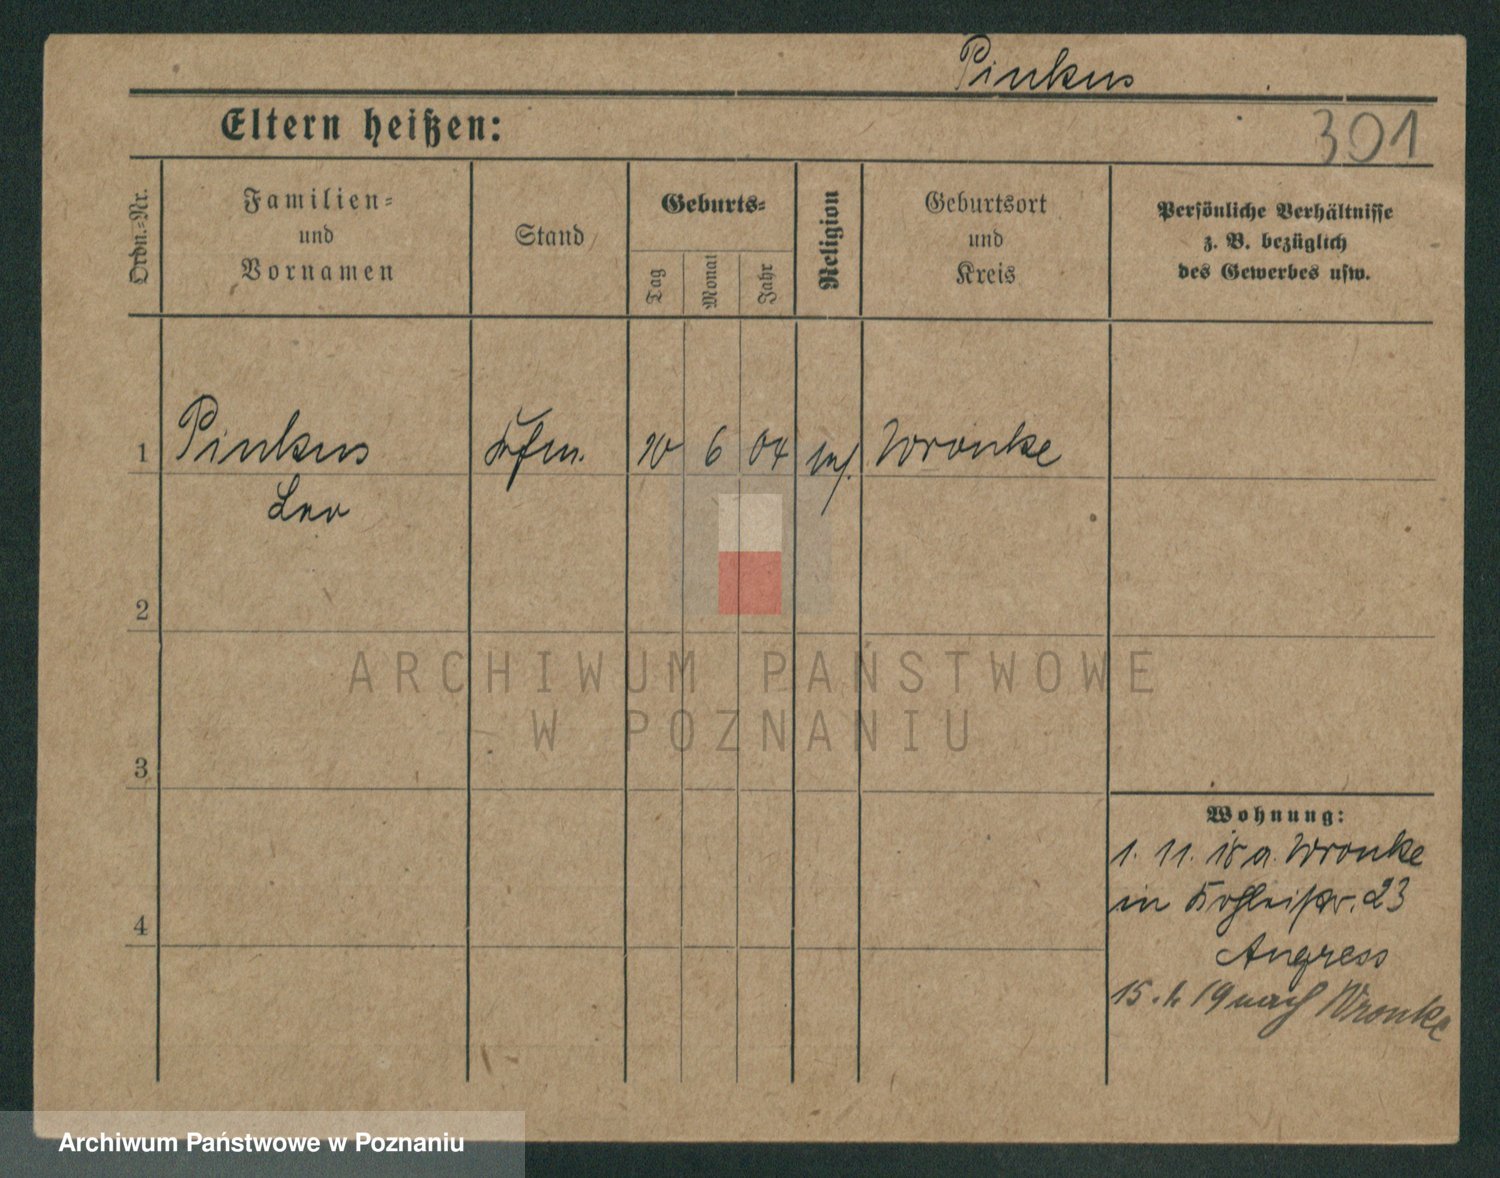 Pinkus
Eltern heißen:
301
Ordn.-Nr.
Familien-
und
Vornamen
Stand
Geburts-
Tag
Monat
Jahr
Religion
Geburtsort
und
Kreis
Persönliche Verhältnisse
z. B. bezüglich
des Gewerbes usw.
1
Pinkus
Kfm.
10
6
04
Wronke
Leo
2
ARCHIWUM PAŃSTWOWE
W POZNANIU
3
Wohnung:
1. 11. 18 a. Wronke
in 23
4
Angress
15. 19 nach Wronke
Archiwum Państwowe w Poznaniu